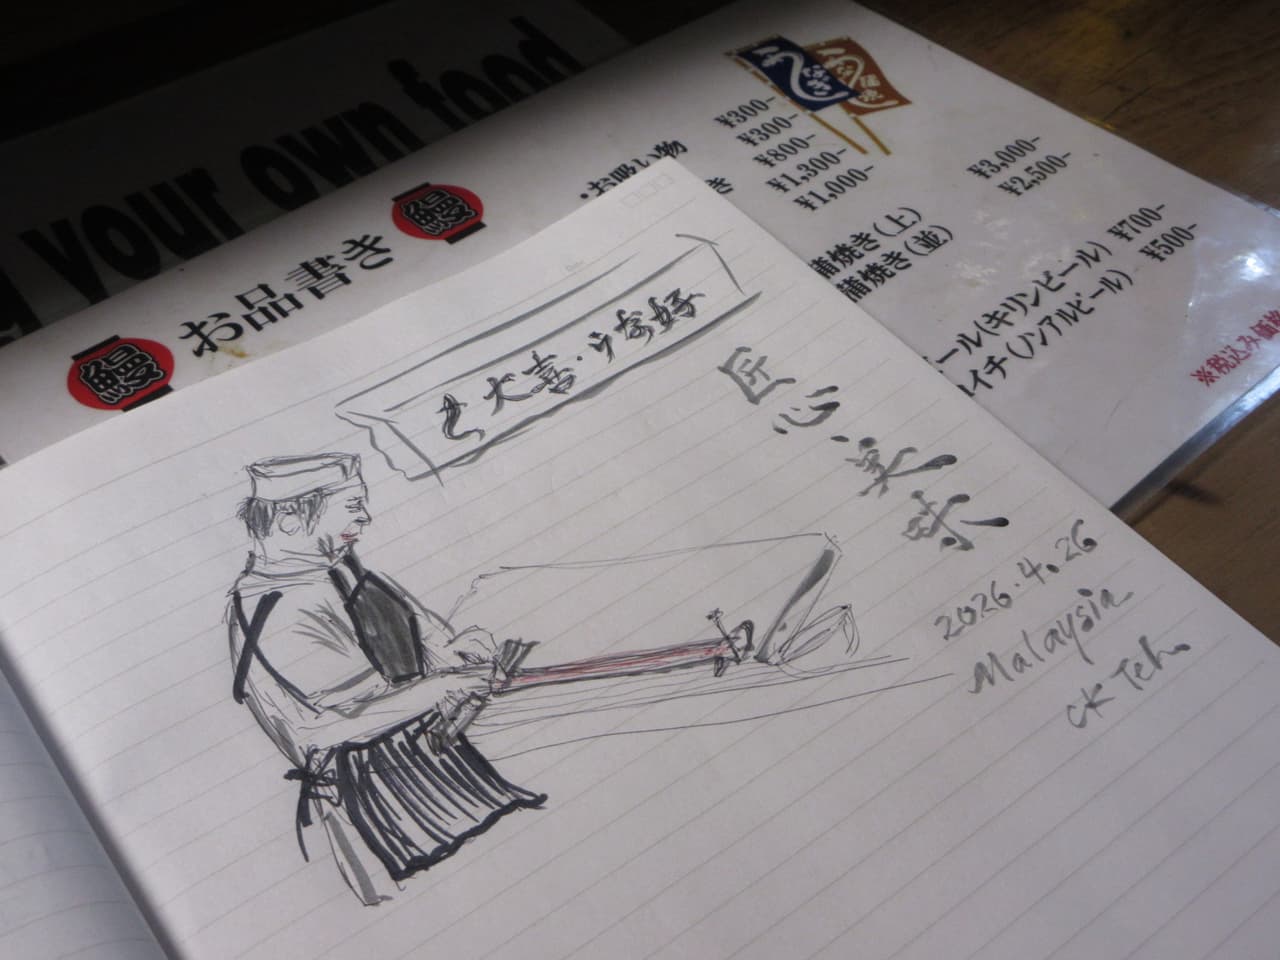 your own food
鰻 お品書き 鰻
うなぎ
・お吸い物 ¥300-
¥300-
き ¥800-
¥1,300-
¥1,000-
蒲焼き(上) ¥3,000-
蒲焼き(並) ¥2,500-
ール(キリンビール) ¥700-
イチ(ノンアルビール) ¥500-
※税込み価
大喜・
匠心・美味
2026.4.26
Malaysia
CK Teh.